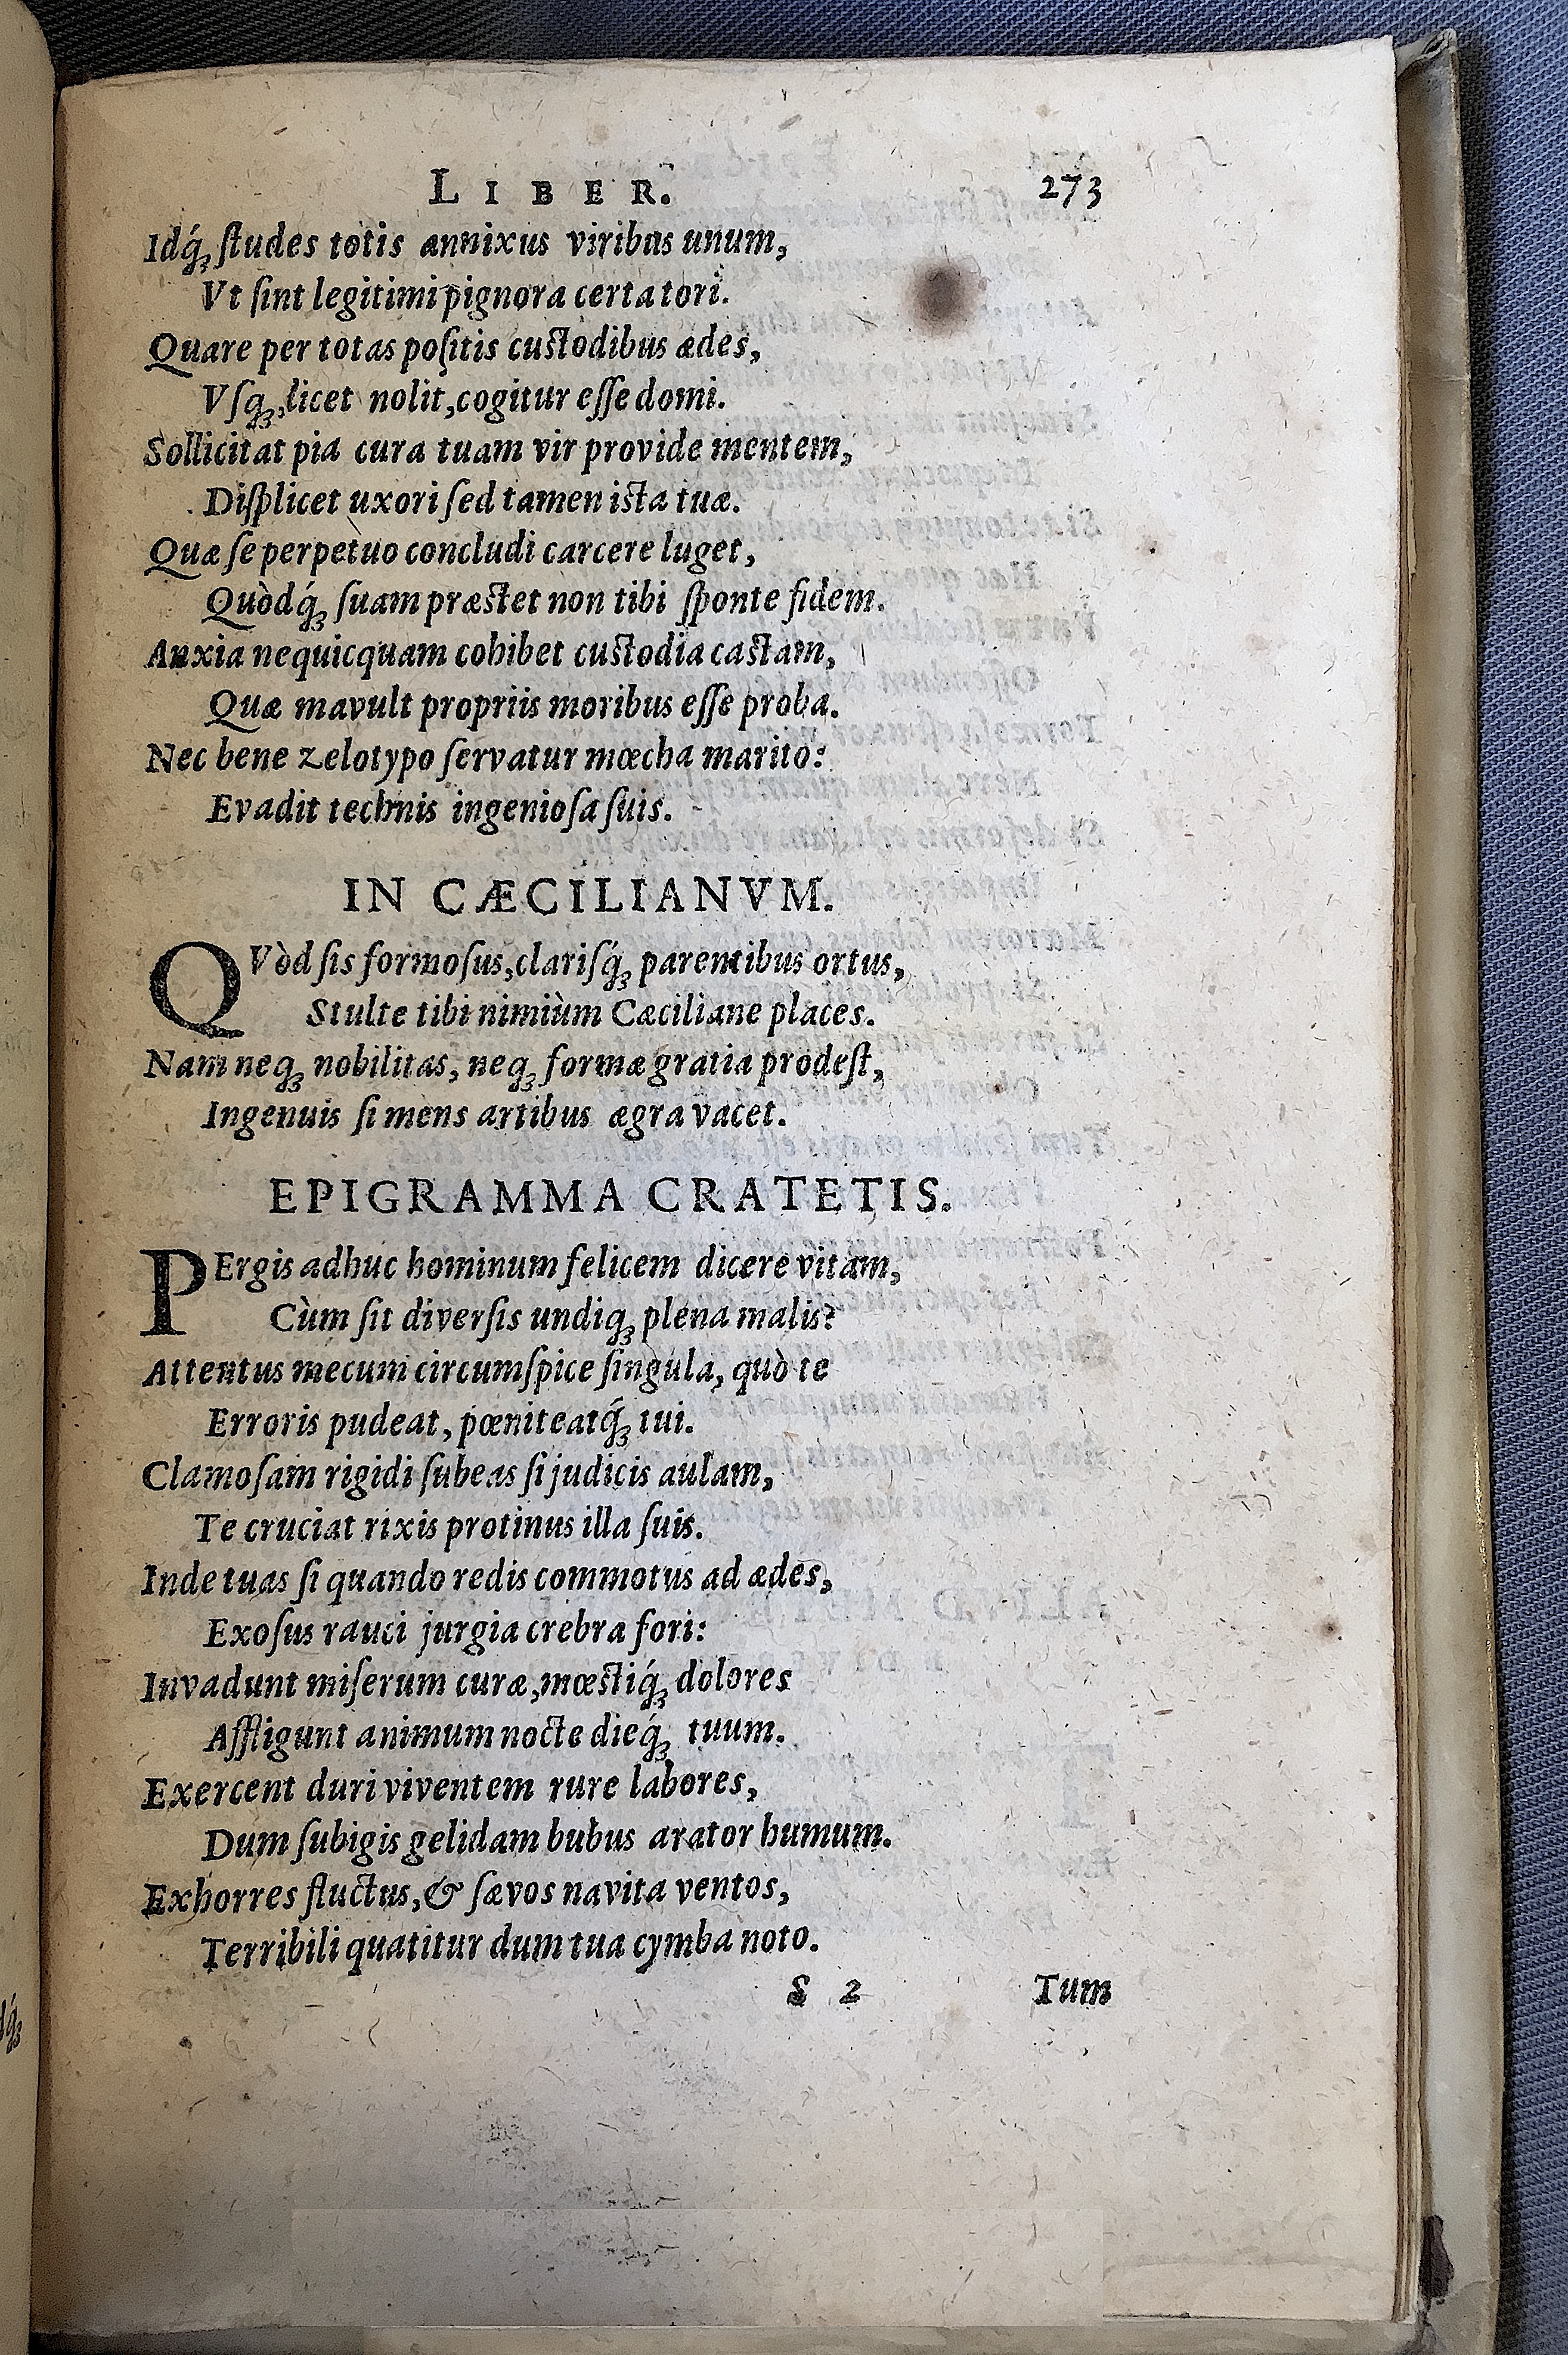 LIBER. 273
Idq́ꝫ ſtudes totis annixus viribus unum,
Vt ſint legitimi pignora certa tori.
Quare per totas poſitis cuſtodibus ædes,
Vſqꝫ, licet nolit, cogitur eſſe domi.
Sollicitat pia cura tuam vir provide mentem,
Diſplicet uxori ſed tamen iſta tuæ.
Quæ ſe perpetuo concludi carcere luget,
Quòdq́ꝫ ſuam præſtet non tibi ſponte fidem.
Anxia nequicquam cohibet cuſtodia caſtam,
Quæ mavult propriis moribus eſſe proba.
Nec bene zelotypo ſervatur mœcha marito:
Evadit technis ingenioſa ſuis.
IN CÆCILIANVM.
QVòd ſis formoſus, clariſq́ꝫ parentibus ortus,
Stulte tibi nimiùm Cæciliane places.
Nam neqꝫ nobilitas, neqꝫ formæ gratia prodeſt,
Ingenuis ſi mens artibus ægra vacet.
EPIGRAMMA CRATETIS.
PErgis adhuc hominum felicem dicere vitam,
Cùm ſit diverſis undiqꝫ plena malis?
Attentus mecum circumſpice ſingula, quò te
Erroris pudeat, pœniteatq́ꝫ tui.
Clamoſam rigidi ſubeas ſi judicis aulam,
Te cruciat rixis protinus illa ſuis.
Inde tuas ſi quando redis commotus ad ædes,
Exoſus rauci jurgia crebra fori:
Invadunt miſerum curæ, mœſtiq́ꝫ dolores
Affligunt animum nocte dieq́ꝫ tuum.
Exercent duri viventem rure labores,
Dum ſubigis gelidam bubus arator humum.
Exhorres fluctus, & ſævos navita ventos,
Terribili quatitur dum tua cymba noto.
S 2 Tum